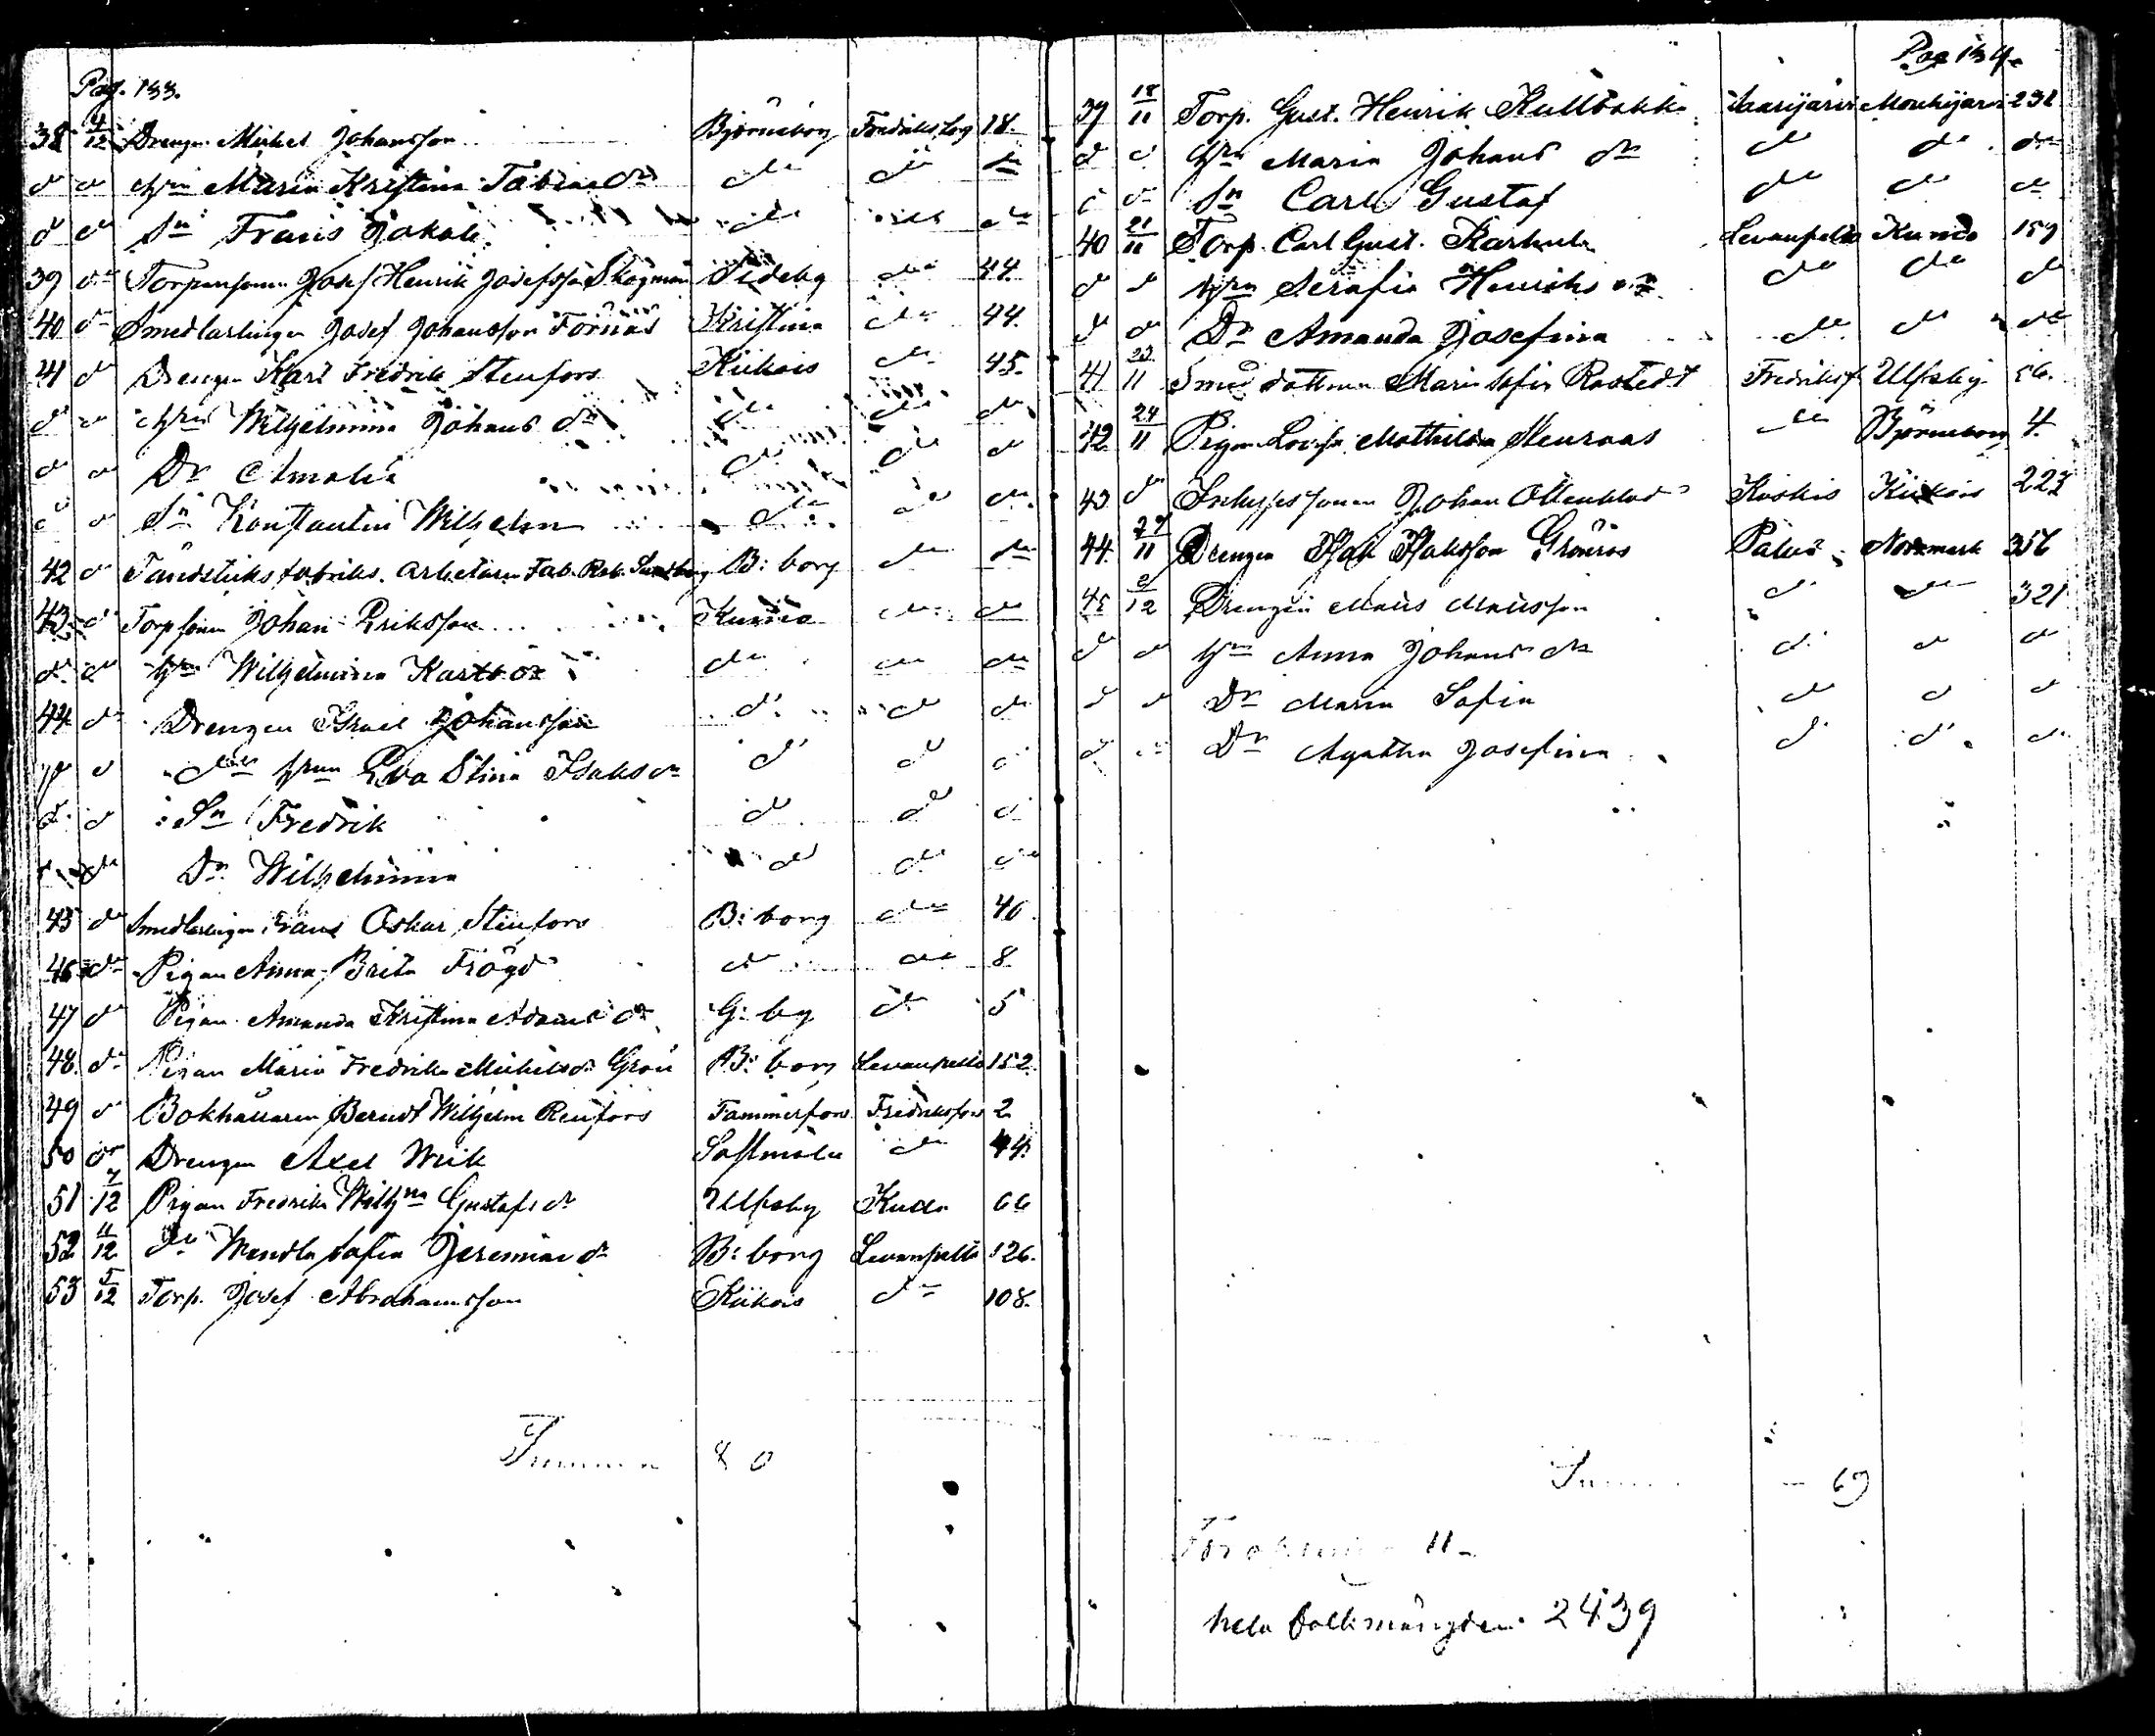 Pag. 133.
38 4/12 Drengen Mickel Johansson Björneborg Fredriksfors 18.
do do Hru Maria Kristina Fabiansdr do do do
do do Sn Frans Jakob do do do
39 do Torparesonen Josef Henrik Josefsson Skogman Sideby do 44
40 do Smedlärlingen Josef Johansson Fornäs Kristina do 44.
41 do Drengen Karl Fredrik Stenfors Kiikois do 45.
do do Hru Wilhelmina Johans dr do do do
do do Dr Amalia do do do
do do Sn Konstantin Wilhelm do do do
42 do Tändsticksfabriks. arbetaren Fab. Rob. B: borg do do
43 do Torpsonen Johan Eriksson do do
do do Hru Wilhelmina do do do
44 do Drengen Israel Johansson do do do
do do do hrun Eva Stina Isaks dr do do do
do do Sn Fredrik do do do
do do Dr Wilhelmina do do do
45 do Smedlärlingen Frans Oskar Stenfors B: borg do 46.
46 do Pigan Anna Brita Frögd do do 8
47 do Pigan Amanda Kristina Adams dr G: by do 5
48. do Pigan Maria Fredrika Mickels dr Grön B: borg Levanpelto 152.
49 do Bokhållaren Berndt Wilhelm Renfors Tammerfors Fredriksfors 2
50 do Drengen Axel Wiik Sastmola do 44.
51 7/12 Pigan Fredrika Wilhna Gustafs dr Ulfsby 66
52 11/12 do Wendla Sofia Jeremias dr B: borg Levanpelto 126.
53 5/12 Torp. Josef Abrahamsson Kiikois do 108.
Summa 80
Pag 134.
39 18/11 Torp. Gust. Henrik Kullbakk 232
do do Hru Maria Johans dr do do do
do do Sn Carl Gustaf do do do
40 21/11 Torp. Carl Gust. Karhula Levanpelto 159
do do Hru Serafia Henriks dr do do do
do do Dr Amanda Josefina do do do
41 23/11 Smed dottren Maria Sofia Rostedt Fredriksf Ulfsby 56.
42 24/11 Pigan Lovisa Mathilda Stenroos do Björneborg 4.
43 do Johan Koskis Kiikois 223
44. 29/11 Drengen Isak Isaksson Grönros Palus Norrmark 356
45 2/12 Drengen Matts Mattsson do do 321
do do Hru Anna Johans dr do do do
do do Dr Maria Sofia do do do
do do Dr Agatha Josefina do do do
Summa 69
Förökning 11
hela folkmängden 2439